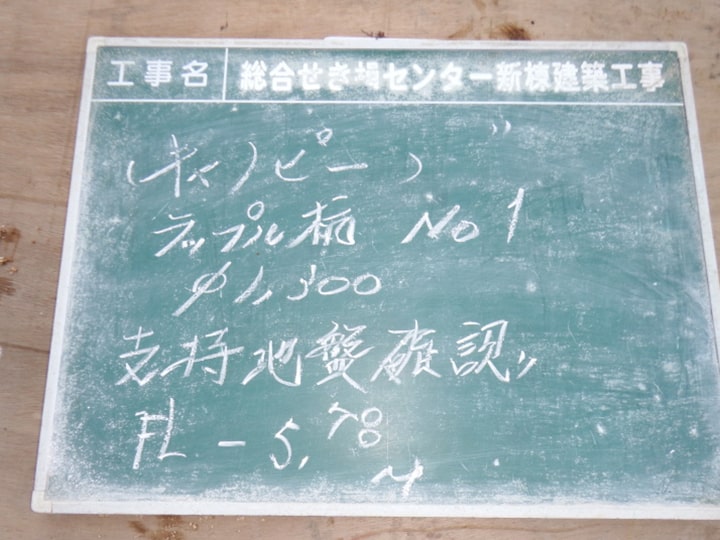 工事名 総合せき損センター新棟建築工事
(キャノピー)
ラップル柄 No 1
φ1,300
支持地盤確認
FL - 5,78